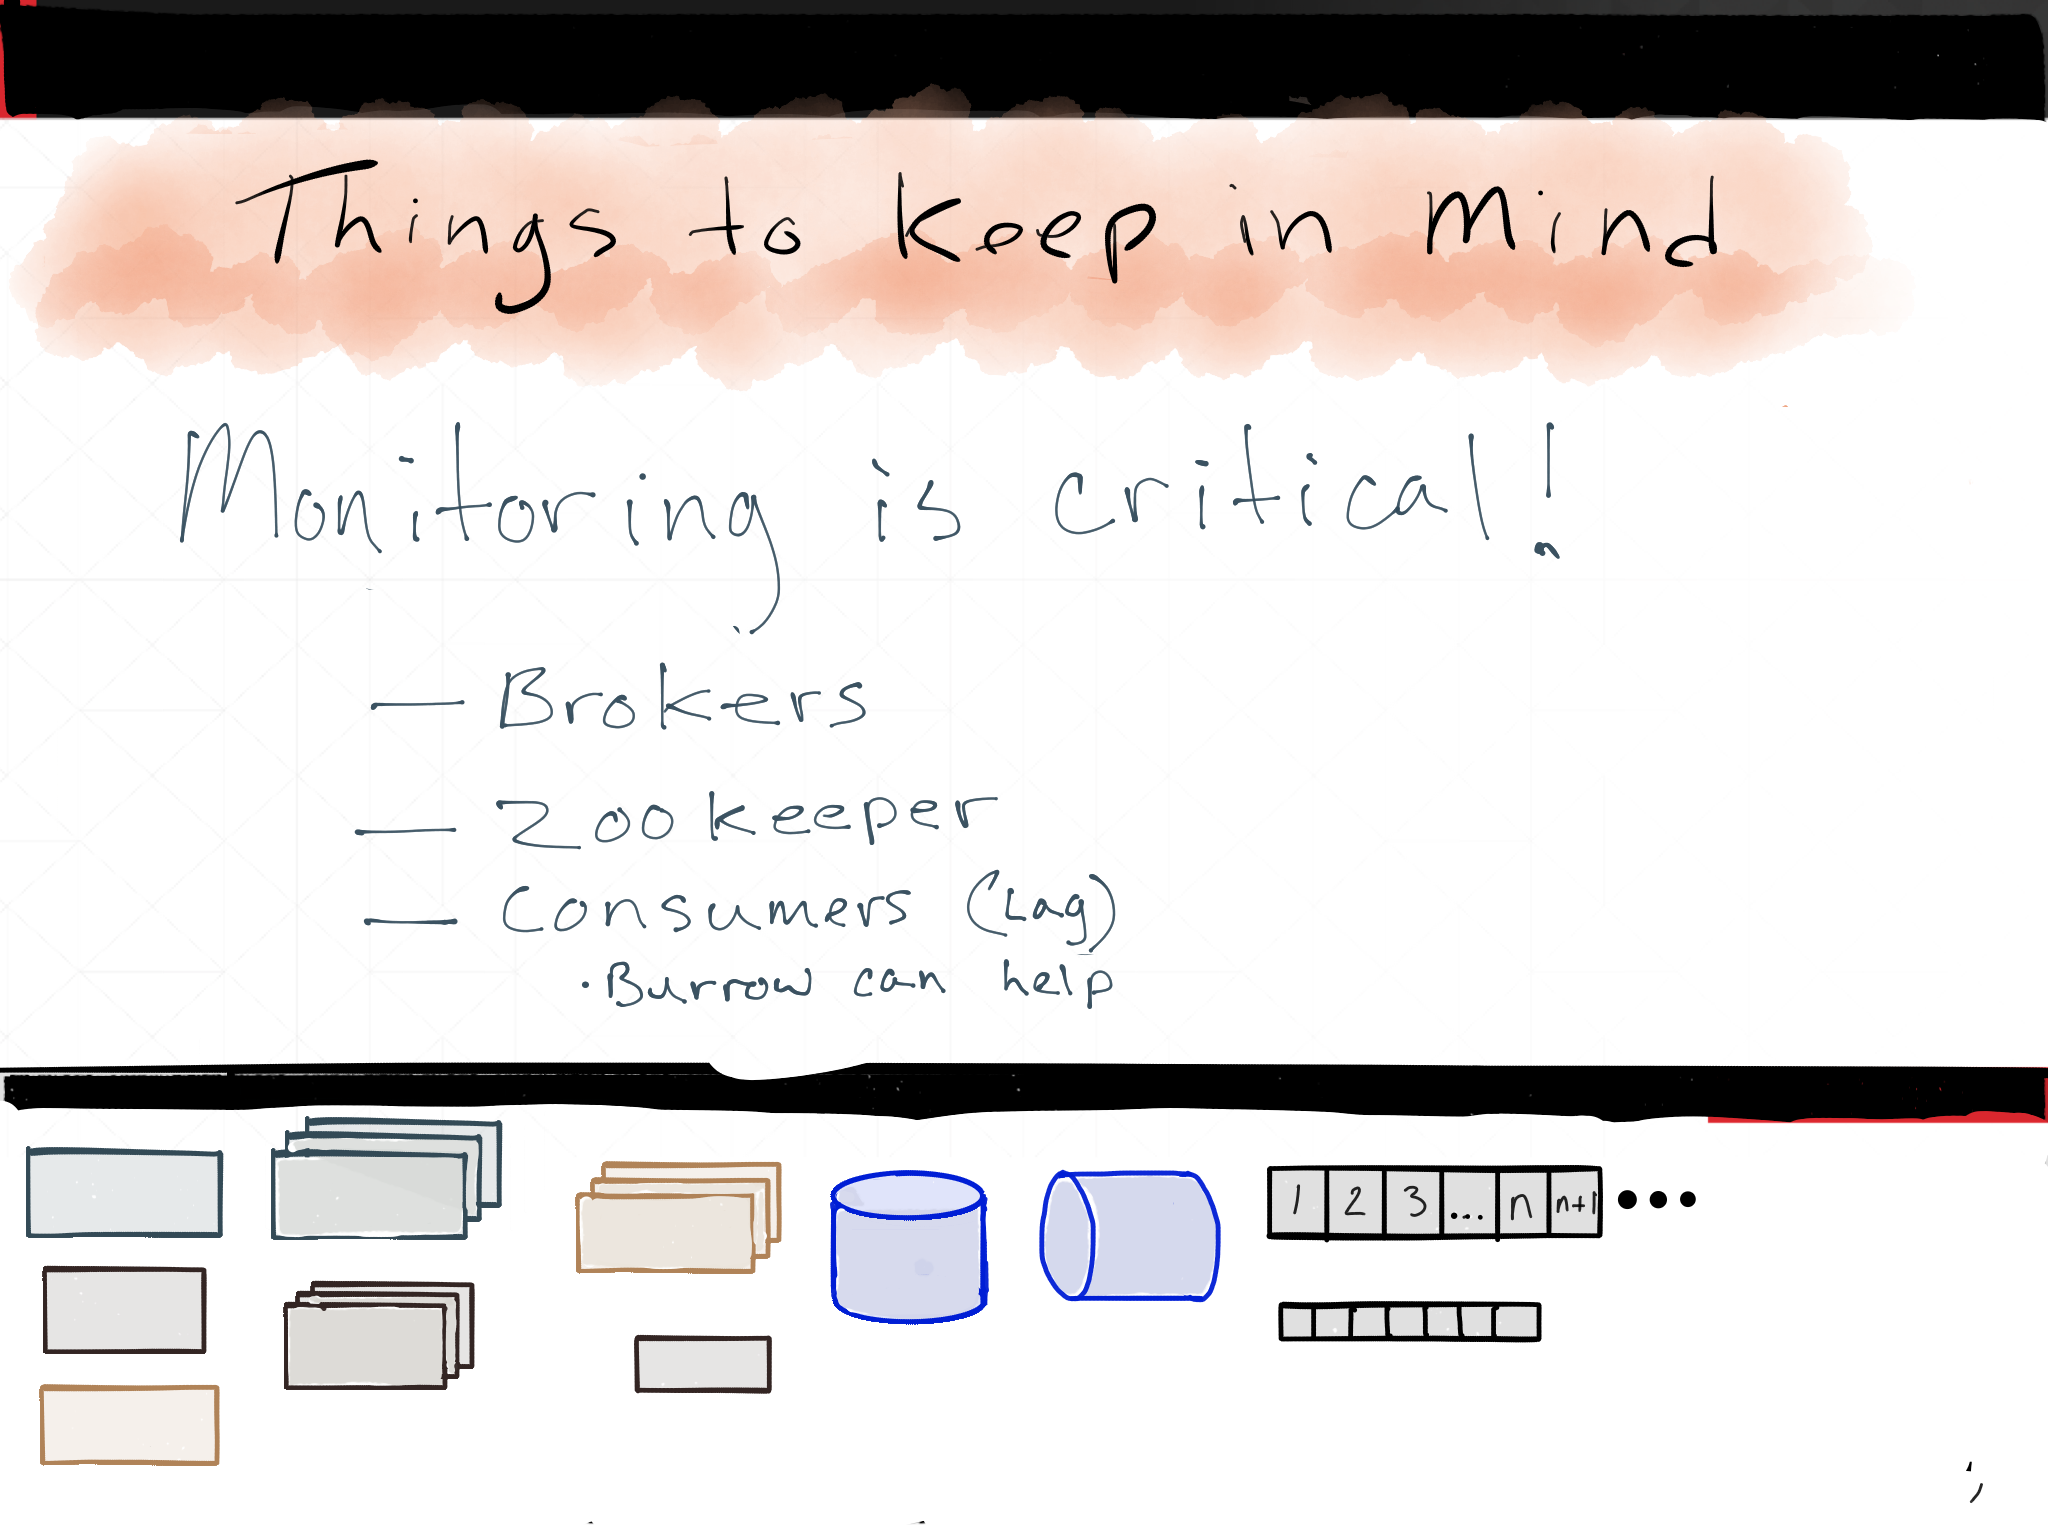 Things to Keep in Mind
Monitoring is critical!
— Brokers
— Zookeeper
— Consumers (Lag)
· Burrow can help
1 2 3 ... n n+1 •••